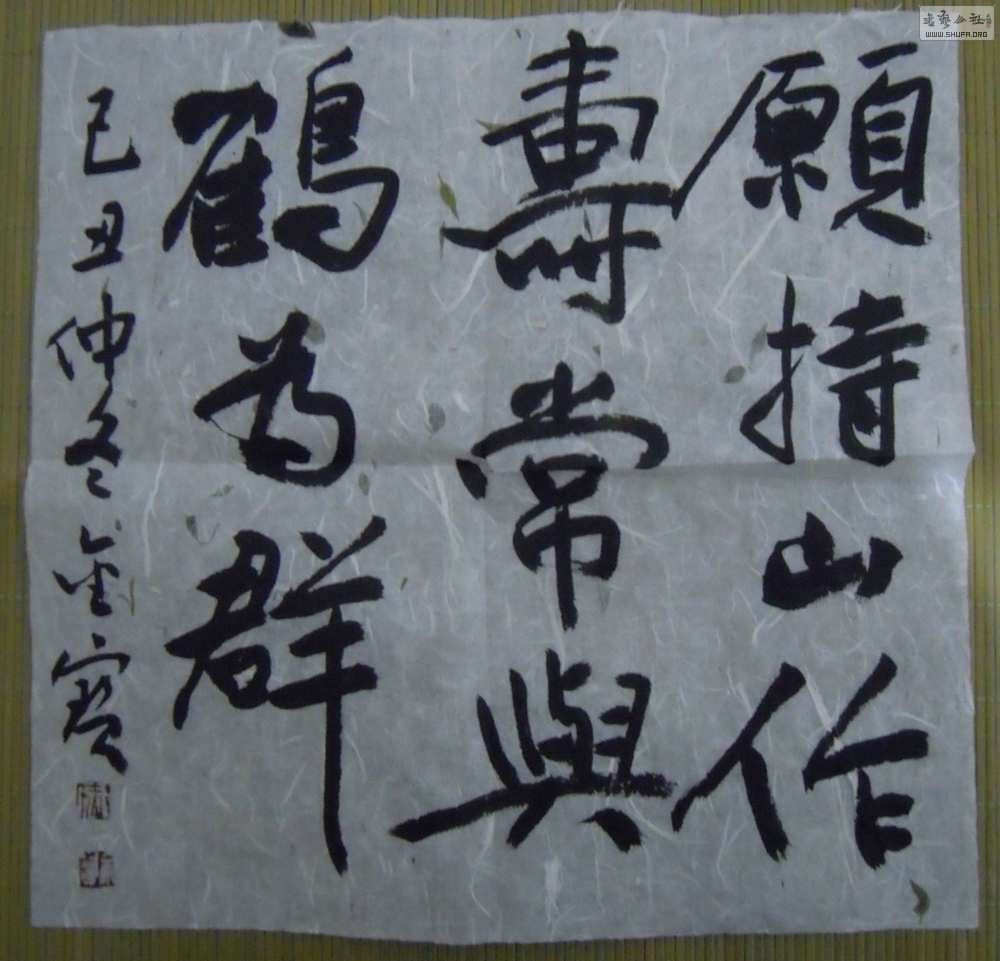 願持山作
壽常與
鶴為群
己丑仲冬金寶
书艺公社
WWW.SHUFA.ORG